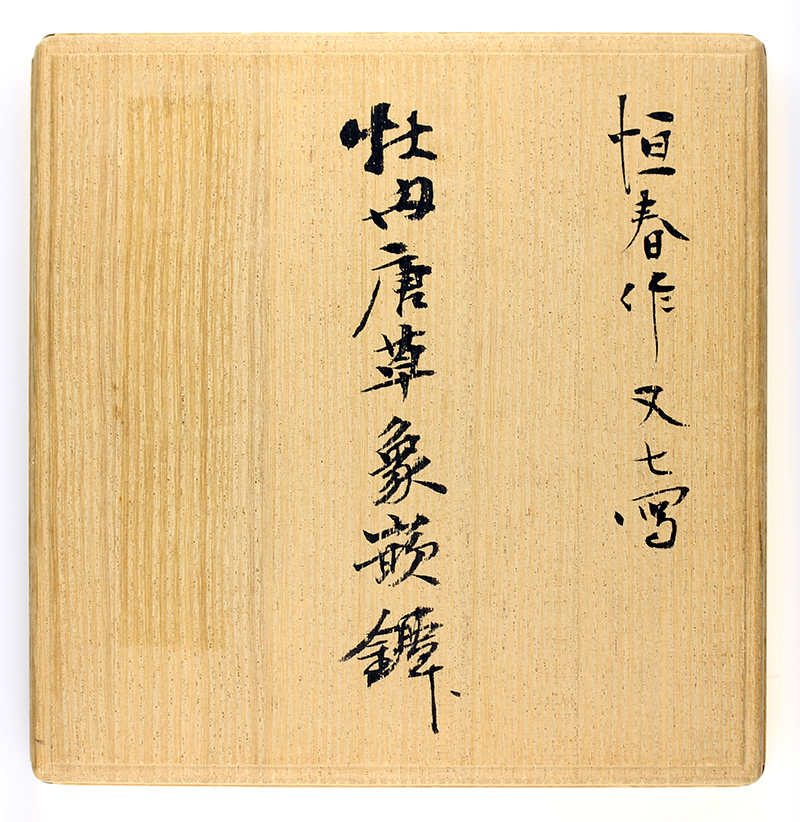 恒春作 又七写
牡丹唐草象嵌鐔